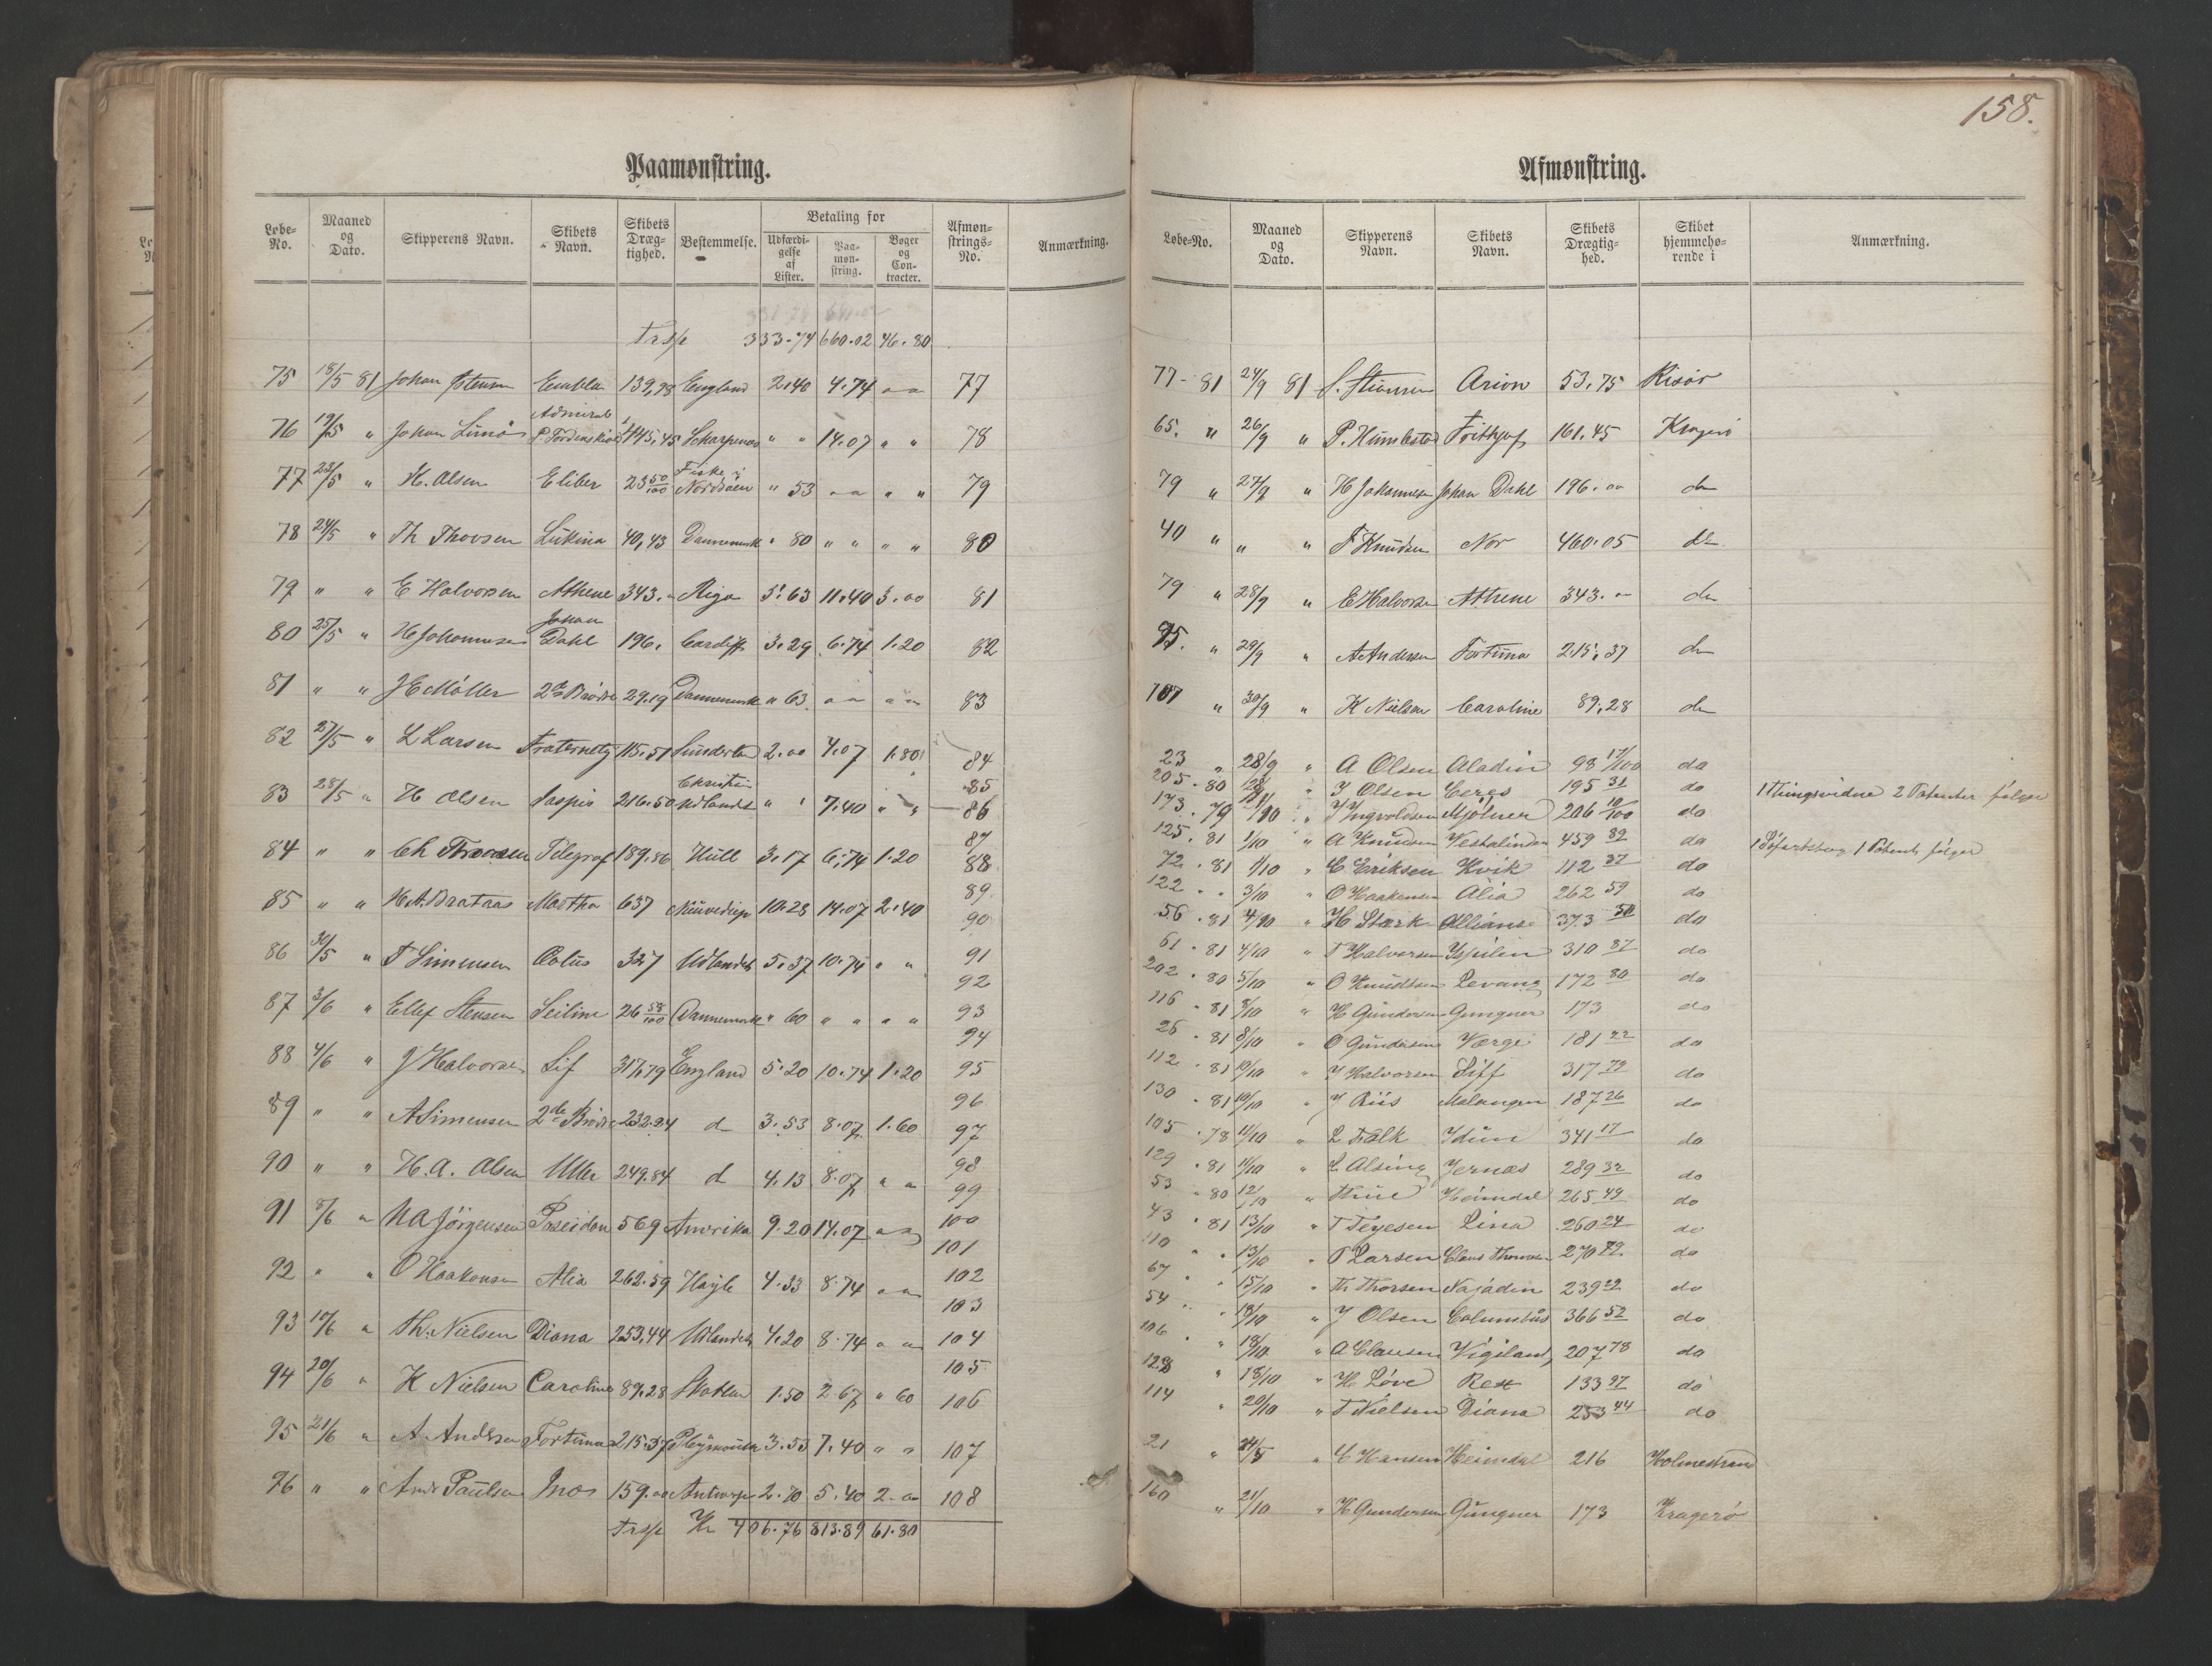 158.
Paamønstring.
Løbe-No. | Maaned og Dato. | Skipperens Navn. | Skibets Navn. | Skibets Dræg-tighed. | Bestemmelse. | Betaling for | Udfærdi-gelse af Lister. | Paa-møn-string. | Bøger og Con-tracter. | Afmøn-strings-No. | Anmærkning.
Trsp 333.74 660.02 46.80
75 18/5 81 Johan Embla 139,98 England 2.40 4.74 " " 77
76 19/5 " Johan Admiral P. Tordenskiold 445,45 " " 14.07 " " 78
77 23/5 " H. Olsen Eliber 23 50/100 Fiske i Nordsöen " 53 " " " " 79
78 24/5 " Th Thorsen Lukina 40,43 Dannemark " 80 " " " " 80
79 " " E Halvorsen Athene 343. " Riga 5.63 11.40 3.00 81
80 25/5 " H Johannesen Johan Dahl 196. Cardiff 3.29 6.74 1.20 82
81 " " J E Möller 2de Brödre 29.19 Dannemark " 63 " " " " 83
82 27/5 " L Larsen Fraternety 115.51 Sunderland 2.00 4.07 1.80 84
85
83 28/5 " H Olsen Jaspis 216.50 Udlandet " " 7.40 " " 86
87
84 " " Ch Thorsen Telegraf 189.86 Hull 3.17 6.74 1.20 88
89
85 " " H.A. Brataas Martha 637 10.28 14.07 2.40 90
86 30/5 " T Simensen 327 Udlandet 5.37 10.74 " " 91
92
87 3/6 " Ellef Stensen Seiline 26 58/100 Dannemark " 60 " " " " 93
94
88 4/6 " J Halvorsen Lif 317,79 England 5.20 10.74 1.20 95
96
89 " " A Simensen 2de Brödre 232.94 d 3.53 8.07 1.60 97
98
90 " " H. A. Olsen Uller 249.84 d 4.13 8.07 " " 99
91 8/6 " N A Jörgensen Poseidon 569 Amerika 9.20 14.07 " " 100
101
92 " " O Haakonsen Alia 262.59 Hayle 4.33 8.74 " " 102
103
93 10/6 " Th. Nielsen Diana 253,44 Udlandet 4.20 8.74 " " 104
105
94 20/6 " K Nielsen Caroline 89.28 Skotland 1.50 2.67 " 60 106
95 21/6 " A. Andersen Fortuna 215.37 Plymouth 3.53 7.40 " " 107
96 " " Ands Paulsen Inos 159.00 Antwerpen 2.70 5.40 2.00 108
Trsp Kr 406.76 813.89 61.80
Afmønstring.
Løbe-No. | Maaned og Dato. | Skipperens Navn. | Skibets Navn. | Skibets Drægtig-hed. | Skibet hjemmehø-rende i | Anmærkning.
77 - 81 24/9 81 Arion 53.75 Risør
65. " 26/9 " P. Humlestad Frithjof 161.45 Kragerö
79 " 27/9 " H Johannesen Johan Dahl 196. " do
40 " " " F Knudsen Nor 460.05 do
79 " 28/9 " E Halvorsen Athene 343. " do
95. " 29/9 " A Andersen Fortuna 215,37 do
107 " 30/9 " K Nielsen Caroline 89,28 do
23 " 28/9 " A Olsen Aladin 98 17/100 do
205 . 80 " J Olsen Ceres 195 31 do 1 Thingsvidne 2 Patenter følger
173 . 79 1/10 " J Ingvoldsen Mjölner 206 10/100 do
125 . 81 1/10 " A Knudsen Vestalinden 459 82 do
72 . 81 1/10 " E Eriksen Kvik 112 37 do
122 . . 3/10 " O Haakonsen Alia 262 59 do
56 . 81 4/10 " H Stærk Allianse 373 50 do
61 . 81 4/10 " T Halvorsen 310 87 do
202 . 80 5/10 " O Knudtsen Levang 172 80 do
116 . 81 8/10 " H Gundersen Gungner 173 do
26 . 81 8/10 " O Gundersen Værge 181 22 do
112 . 81 10/10 " J Halvorsen Liff 317 79 do
130 . 81 10/10 " J Riis Malangen 187 26 do
105 . 78 11/10 " L Falk Idun 341 17 do
129 . 81 11/10 " L Alsing Jernæs 289 32 do
53 . 80 12/10 " Thue Heimdal 265 49 do
43 . 81 13/10 " T Tegesen Lina 260 24 do
110 " " 13/10 " T Larsen Claus Thomesen 270 72 do
67 " " 15/10 " Th Thorsen Najaden 239 22 do
54 " " 18/10 " J Olsen Columbus 366 52 do
106 . " 18/10 " A Clausen Vigilant 207 78 do
128 " 18/10 " H Löve Rest 133 97 do
114 " 20/10 " T Nielsen Diana 253 44 do
21 " " C Hansen Heimdal 216 Holmestrand
160 " 21/10 " H Gundersen Gungner 173 Kragerö